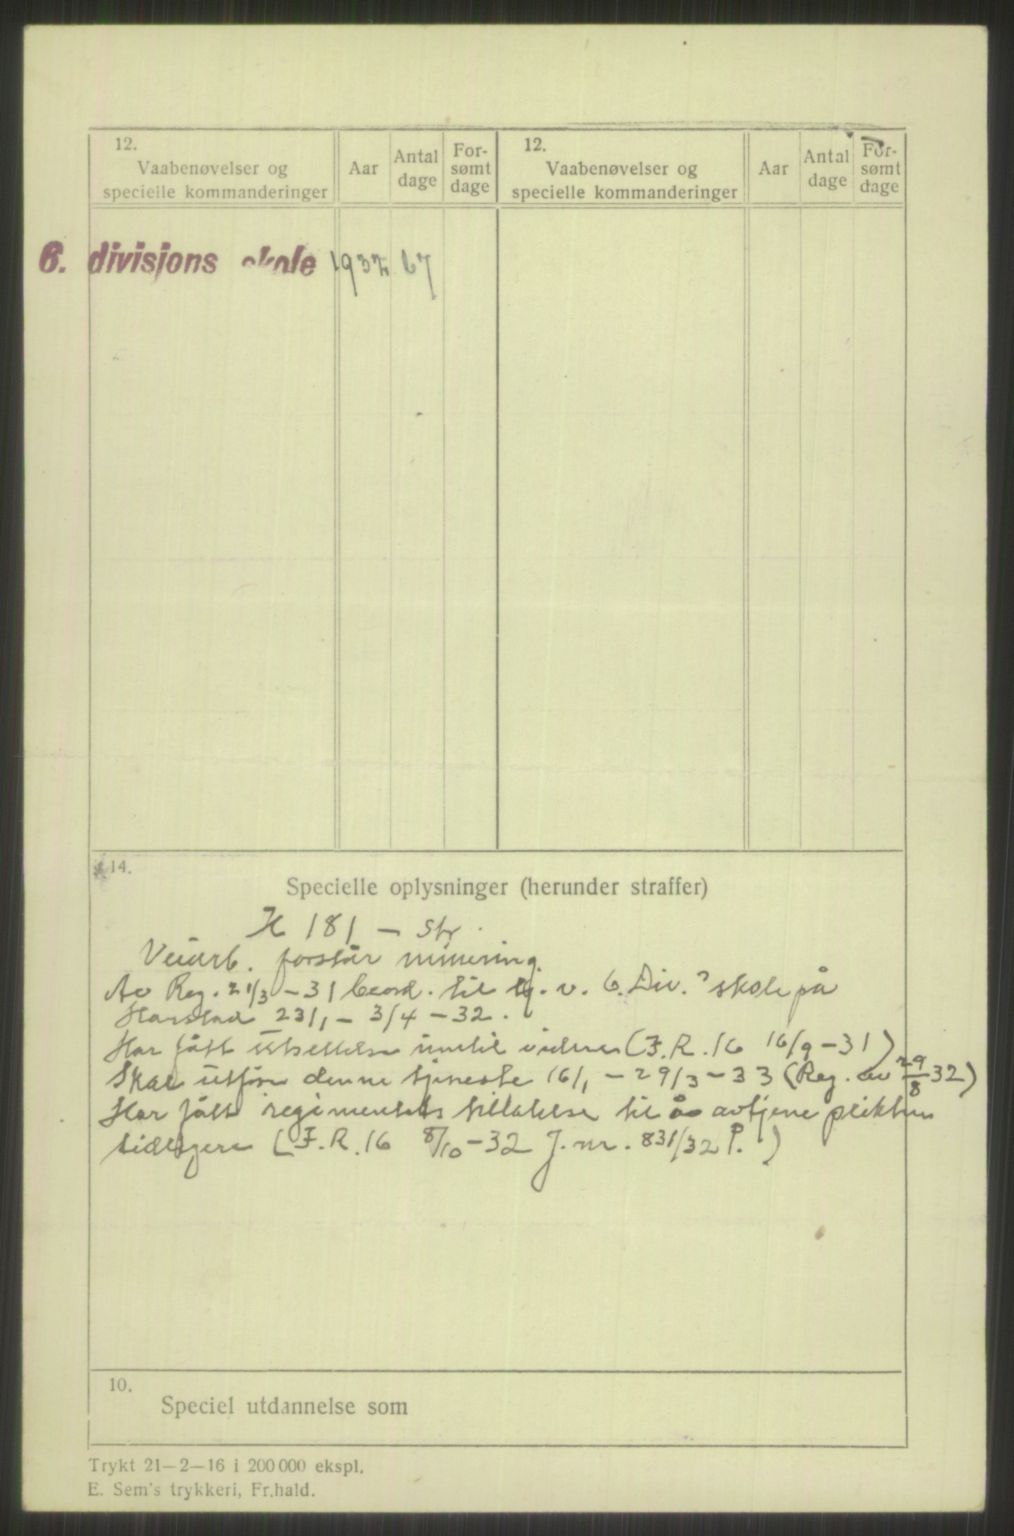 12.
Vaabenøvelser og
specielle kommanderinger
Aar
Antal
dage
For-
sømt
dage
12.
Vaabenøvelser og
specielle kommanderinger
Aar
Antal
dage
For-
sømt
dage
6. divisjons skole 67
14.
Specielle oplysninger (herunder straffer)
H 181 – str.
Veiarb. forstår minering.
Av Reg. 21/3 – 31 beord. til tj. v. 6. Div.s skole på
Harstad 23/1 – 3/4 – 32.
Har fått utsettelse inntil videre (I.R. 16 16/9 – 31)
Skal utføre denne tjeneste 16/1 – 29/3 – 33 (Reg. av 29/8 32)
Har fått regimentets tillatelse til å avtjene plikten
tidligere (I.R. 16 8/10 – 32 J. nr. 831/32 P.)
10.
Speciel utdannelse som
Trykt 21–2–16 i 200 000 ekspl.
E. Sem's trykkeri, Fr.hald.